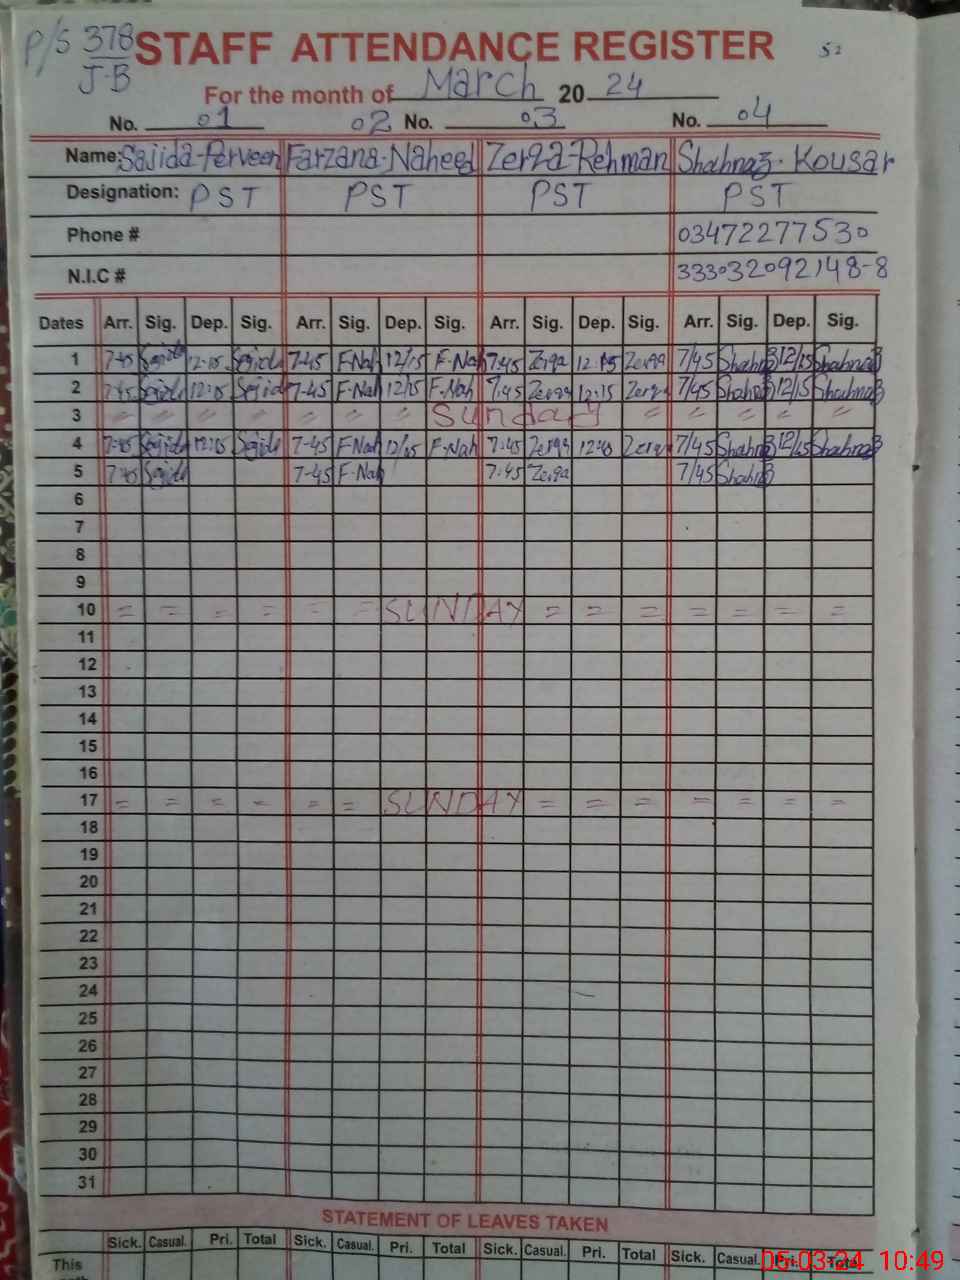 P/S 378 J.B
STAFF ATTENDANCE REGISTER 52
For the month of March 20 24
No. 01 02 No. 03 No. 04
Name: Sajida-Perveen Farzana-Naheed Zerqa-Rehman Shahnaz-Kousar
Designation: PST PST PST PST
Phone # 03472277530
N.I.C # 333032092148-8
Dates Arr. Sig. Dep. Sig. Arr. Sig. Dep. Sig. Arr. Sig. Dep. Sig. Arr. Sig. Dep. Sig.
1 7-45 Sajida 12-15 Sajida 7-45 F-Nah 12/15 F-Nah 7:45 Zerqa 12:15 Zerqa 7/45 Shahnaz 12/15 Shahnaz
2 7-45 Sajida 12-15 Sajida 7-45 F-Nah 12/15 F-Nah 7:45 Zerqa 12:15 Zerqa 7/45 Shahnaz 12/15 Shahnaz
3 〃 〃 〃 〃 〃 〃 〃 Sunday 〃 〃 〃 〃 〃 〃
4 7-45 Sajida 12-15 Sajida 7-45 F-Nah 12/15 F-Nah 7:45 Zerqa Zerqa 7/45 Shahnaz 12/15 Shahnaz
5 7-45 Sajida 7-45 F-Nah 7:45 Zerqa 7/45 Shahnaz
6
7
8
9
10 = = = = = = SUNDAY = = = = = = =
11
12
13
14
15
16
17 = = = = = = SUNDAY = = = = = = =
18
19
20
21
22
23
24
25
26
27
28
29
30
31
STATEMENT OF LEAVES TAKEN
Sick. Casual. Pri. Total Sick. Casual. Pri. Total Sick. Casual. Pri. Total Sick. Casual. Pri. Total
This
05-03-24 10:49